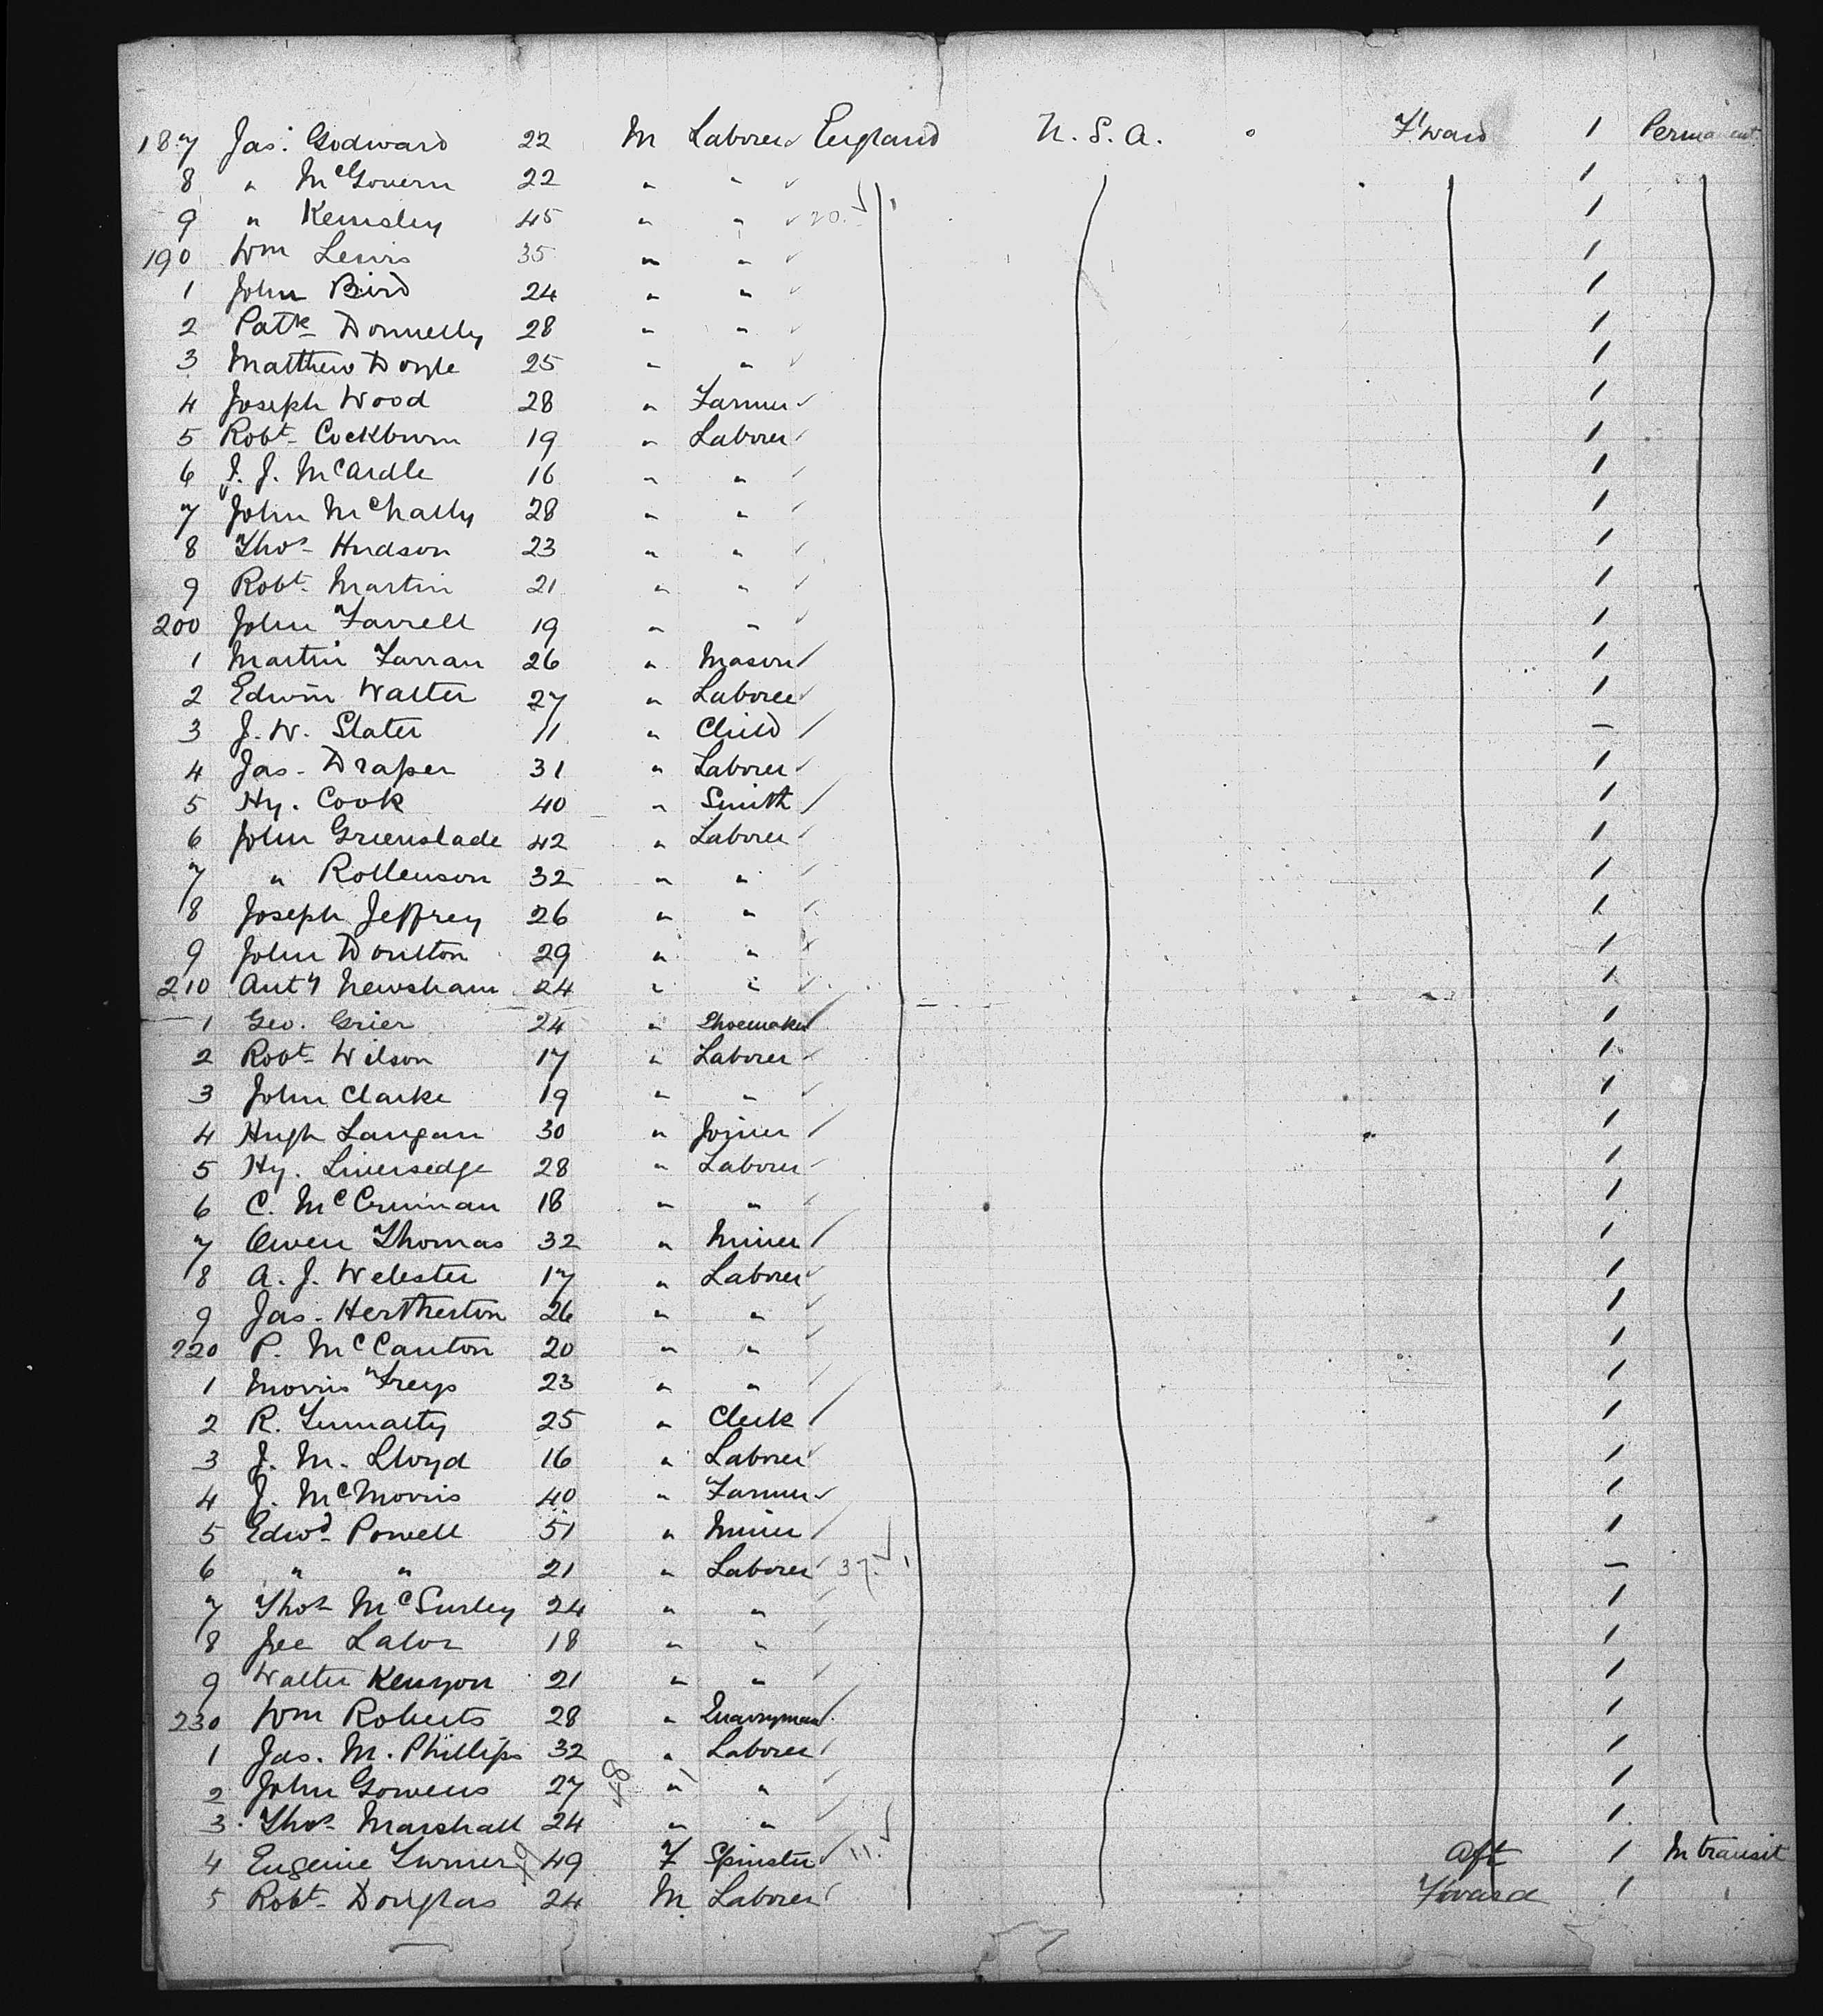 187 Jas. Godward 22 M Laborer England U.S.A. F'ward 1 Permanent
8 " McGovern 22 " " 1
9 " Kemsley 45 " " 20. 1
190 Wm Lewis 35 " " 1
1 John Bird 24 " " 1
2 Patk Donnelly 28 " " 1
3 Matthew Doyle 25 " " 1
4 Joseph Wood 28 " Farmer 1
5 Robt Cockburn 19 " Laborer 1
6 J. J. McArdle 16 " " 1
7 John McNally 28 " " 1
8 Thos Hudson 23 " " 1
9 Robt Martin 21 " " 1
200 John Farrell 19 " " 1
1 Martin Farran 26 " Mason 1
2 Edwin Walter 27 " Laborer 1
3 J. W. Slater 11 " Child –
4 Jas. Draper 31 " Laborer 1
5 Hy. Cook 40 " Smith 1
6 John Greenslade 42 " Laborer 1
7 " Rollenson 32 " " 1
8 Joseph Jeffrey 26 " " 1
9 John Doulton 29 " " 1
210 Anty Newsham 24 " " 1
1 Geo. Grier 24 " Shoemaker 1
2 Robt Wilson 17 " Laborer 1
3 John Clarke 19 " " 1
4 Hugh Langan 30 " Joiner 1
5 Hy. Liversedge 28 " Laborer 1
6 C. McCrminan 18 " " 1
7 Owen Thomas 32 " Miner 1
8 A. J. Webster 17 " Laborer 1
9 Jas. Hertherton 26 " " 1
220 P. McCanton 20 " " 1
1 Morris Freys 23 " " 1
2 R. 25 " Clerk 1
3 J. M. Lloyd 16 " Laborer 1
4 J. McMorris 40 " Farmer 1
5 Edwd Powell 51 " Miner 1
6 " " 21 " Laborer 37. –
7 Thos McSurley 24 " " 1
8 Jee Lalor 18 " " 1
9 Walter Kenyon 21 " " 1
230 Wm Roberts 28 " Quarryman 1
1 Jas. M. Phillips 32 " Laborer 1
2 John Gowens 27 48 " " 1
3 Thos Marshall 24 " " 1
4 Eugenie Turner 49 F Spinster 11. Aft 1 In transit
5 Robt Douglas 24 M Laborer F'ward 1 "